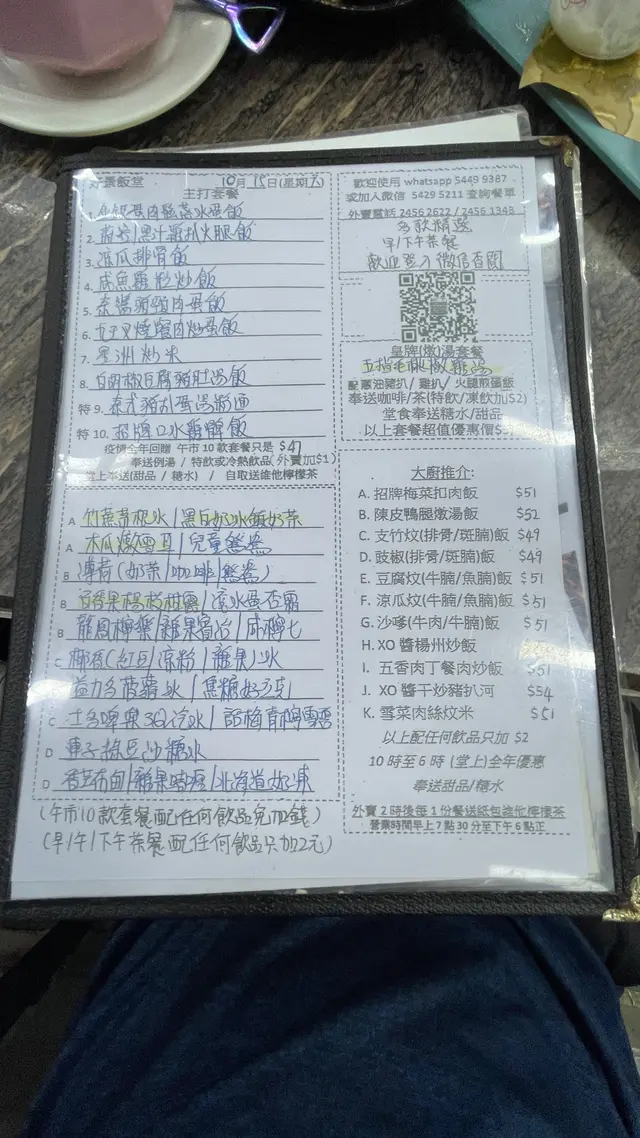 好景飯堂 10月15日(星期六)
主打套餐
滑蛋飯
2. 黑汁雞扒火腿飯
3. 涼瓜排骨飯
4. 咸魚雞粒炒飯
5. 蛋飯
6. 叉燒 肉炒蛋飯
7. 星洲炒米
8. 豬肚湯飯
特 9. 泰式豬扒蛋湯粉麵
特 10. 招牌口水雞髀飯
疫情全年回贈 午市 10 款套餐只是 $47
奉送例湯 / 特飲或冷熱飲品(外賣加$1)
堂上奉送(甜品 / 糖水) / 自取送維他檸檬茶
A 竹蔗茅根水|黑白奶冰鎮奶茶
A 木瓜燉雪耳|兒童鴛鴦
B 薄荷(奶茶|咖啡|鴛鴦)
B 百香果楊枝甘露|流水蛋杏霜
B 龍鳳檸樂|雜果賓治|咸檸七
C 椰香(紅豆|涼粉|雜果)冰
益力多菠蘿冰|焦糖好立克
C 士多啤梨
D 綠豆沙糖水
D 香芒布甸|雜果啫喱|北海道奶凍
(午市10款套餐配任何飲品免加錢)
(早|午|下午茶餐配任何飲品只加2元)
歡迎使用 whatsapp 5449 9387
或加入微信 5429 5211 查詢餐單
外賣電話 2456 2622 / 2456 1348
多款精選
早/下午茶餐
歡迎登入微信查閱
皇牌(燉)湯套餐
五指毛桃燉雞湯
配蔥油豬扒/ 雞扒/ 火腿煎蛋飯
奉送咖啡/茶(特飲/凍飲加$2)
堂食奉送糖水/甜品
以上套餐超值優惠價
大廚推介:
A. 招牌梅菜扣肉飯 $51
B. 陳皮鴨腿燉湯飯 $52
C. 支竹炆(排骨/斑腩)飯 $49
D. 豉椒(排骨/斑腩)飯 $49
E. 豆腐炆(牛腩/魚腩)飯 $51
F. 涼瓜炆(牛腩/魚腩)飯 $51
G. 沙嗲(牛肉/牛腩)飯 $51
H. XO 醬楊州炒飯
I. 五香肉丁餐肉炒飯 $51
J. XO 醬干炒豬扒河 $54
K. 雪菜肉絲炆米 $51
以上配任何飲品只加 $2
10 時至 6 時 (堂上)全年優惠
奉送甜品/糖水
外賣 2 時後每 1 份餐送紙包維他檸檬茶
營業時間早上 7 點 30 分至下午 6 點正